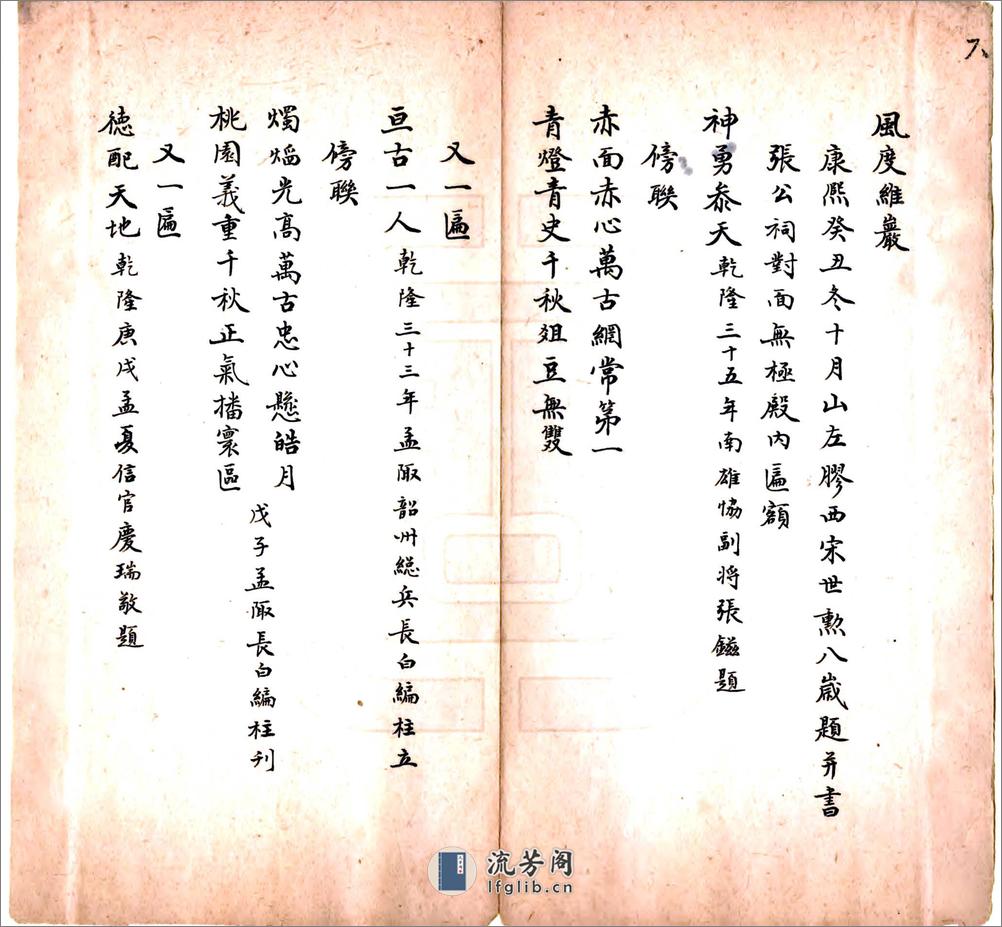 六
風度維巖
康熙癸丑冬十月山左膠西宋世勲八歲題并書
張公祠對面無極殿内匾額
神勇叅天乾隆三十五年南雄恊副將張鎡題
傍聯
赤面赤心萬古綱常第一
青燈青史千秋俎豆無雙
又一匾
亘古一人乾隆三十三年孟陬韶州總兵長白編柱立
傍聯
燭熖光髙萬古忠心懸皓月
桃園義重千秋正氣播寰區
戊子孟陬長白編柱刋
又一匾
徳配天地乾隆庚戌孟夏信官慶瑞敬題
流芳阁
lfglib.cn